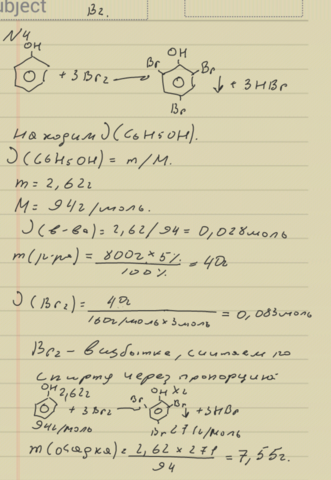 ubject
Br.
N4
OH
+ 3Br₂ ⟶ OH Br Br Br ↓ + 3HBr
Находим ν(C6H5OH).
ν(C6H5OH) = m/M.
m = 2,62г
M = 94г/моль.
ν(в-ва) = 2,62/94 = 0,028моль
m(р-ра) = 800г×5% / 100% = 40г
ν(Br₂) = 40г / 160г/моль×3моль = 0,083моль
Br₂ - в избытке, считаем по
спирту через пропорцию
OH 2,62г OH xг
+ 3Br₂ ⟶ Br Br ↓ + 3HBr
94г/моль Br 271г/моль
m(осадка) = 2,62 × 271 / 94 = 7,55г.